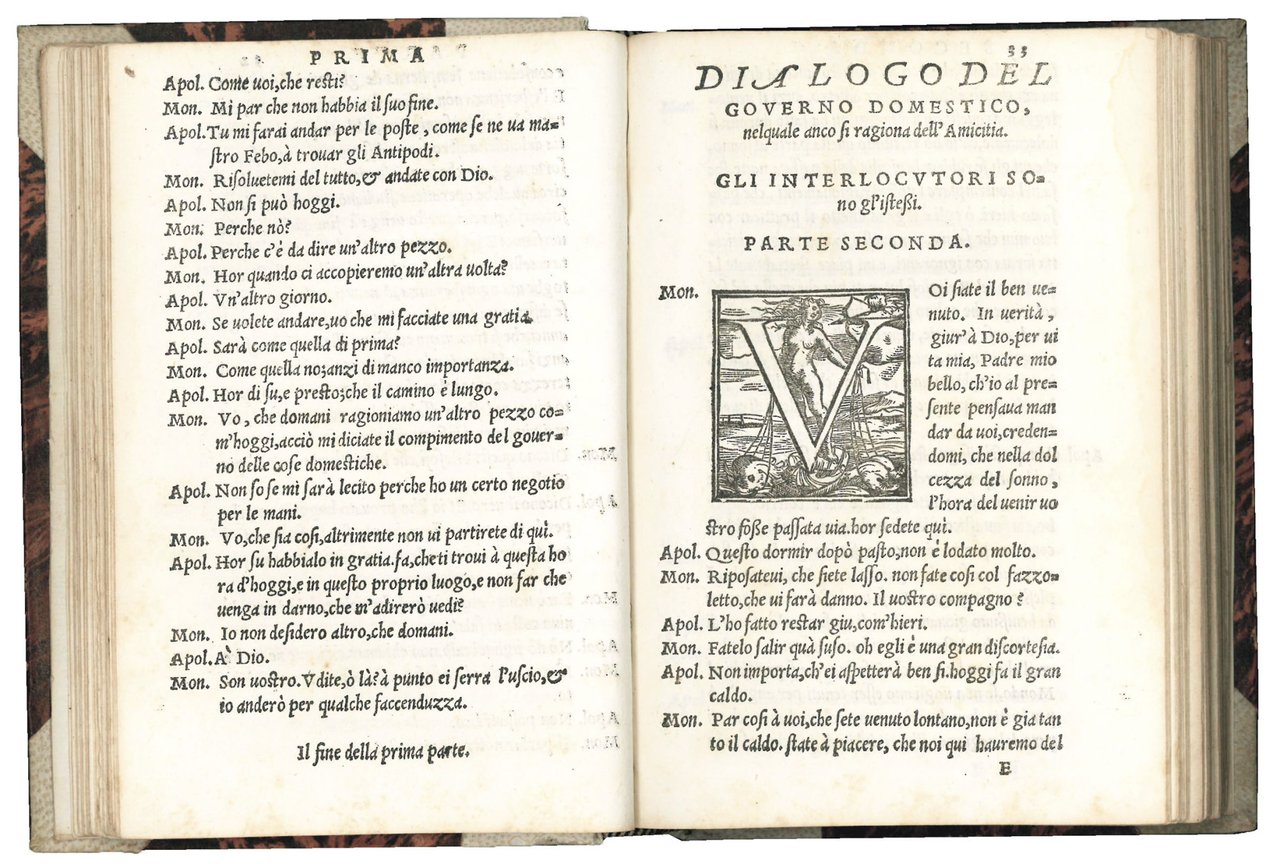 PRIMA
Apol. Come uoi, che resti?
Mon. Mi par che non habbia il suo fine.
Apol. Tu mi farai andar per le poste, come se ne ua ma-
stro Febo, à trouar gli Antipodi.
Mon. Risoluetemi del tutto, & andate con Dio.
Apol. Non si può hoggi.
Mon. Perche nò?
Apol. Perche c'é da dire un'altro pezzo.
Mon. Hor quando ci accopieremo un'altra uolta?
Apol. Vn'altro giorno.
Mon. Se uolete andare, uo che mi facciate una gratia.
Apol. Sarà come quella di prima?
Mon. Come quella no; anzi di manco importanza.
Apol. Hor di su, e presto; che il camino è lungo.
Mon. Vo, che domani ragioniamo un'altro pezzo co-
m'hoggi, acciò mi diciate il compimento del gouer-
no delle cose domestiche.
Apol. Non so se mi sarà lecito perche ho un certo negotio
per le mani.
Mon. Vo, che sia cosi, altrimente non ui partirete di quì.
Apol. Hor su habbialo in gratia. fa, che ti troui à questa ho
ra d'hoggi, e in questo proprio luogo, e non far che
uenga in darno, che m'adirerò uedi?
Mon. Io non desidero altro, che domani.
Apol. A' Dio.
Mon. Son uostro. Vdite, ò là? à punto ei serra l'uscio, &
io anderò per qualche faccenduzza.
Il fine della prima parte.
33
DIALOGO DEL
GOVERNO DOMESTICO,
nelquale anco si ragiona dell'Amicitia.
GLI INTERLOCVTORI SO-
no gl'istessi.
PARTE SECONDA.
Mon. VOi siate il ben ue-
nuto. In uerità,
giur'à Dio, per ui
ta mia, Padre mio
bello, ch'io al pre-
sente pensaua man
dar da uoi, creden-
domi, che nella dol
cezza del sonno,
l'hora del uenir uo
stro fosse passata uia. hor sedete quì.
Apol. Questo dormir dopò pasto, non è lodato molto.
Mon. Riposateui, che siete lasso. non fate cosi col fazzo-
letto, che ui farà danno. Il uostro compagno?
Apol. L'ho fatto restar giu, com'hieri.
Mon. Fatelo salir quà suso. oh egli è una gran discortesia.
Apol. Non importa, ch'ei aspetterà ben si. hoggi fa il gran
caldo.
Mon. Par cosi à uoi, che sete uenuto lontano, non è gia tan
to il caldo. state à piacere, che noi qui hauremo del
E